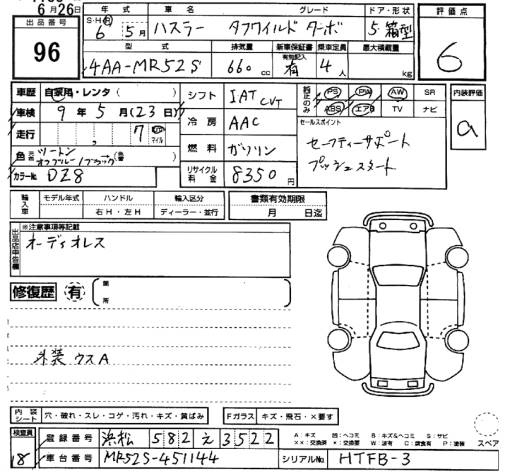 6月26日
出品番号
96
年式 車名 グレード ドア・形状
S・H 6年 5月 ハスラー タフワイルド ターボ 5 箱型
評価点
6
型式 排気量 新車保証書 乗車定員 最大積載量
4AA-MR52S 660cc 有無記入 有 4人 kg
車歴 自家用・レンタ( )
車検 9年5月(23日)
走行 7 マイル
色 元色 ツートン オフブルー/ブラック 色替
カラーNo. DZ8
シフト IAT CVT
冷房 AAC
燃料 ガソリン
リサイクル料金 8350円
純正のみ PS PW AW SR
ABS エアB TV ナビ
内装評価
a
セールスポイント
セーフティーサポート
プッシュスタート
輸入車 モデル年式 ハンドル 輸入区分
右H・左H ディーラー・並行
書類有効期限
月 日迄
出品店申告欄
※注意事項等記載
オーディオレス
修復歴 有 箇所
外装 ウスA
内装シート 穴・破れ・スレ・コゲ・汚れ・キズ・黄ばみ
Fガラス キズ・飛石・×要す
スペア
検査員
18
登録番号 浜松 582 え 3522
車台番号 MR52S-451144
シリアルNo. HTFB-3
A:キズ 凹:ヘコミ B:キズ&ヘコミ S:サビ
××:交換済 ×:要交換 W:波有 C:腐食有 P:塗装